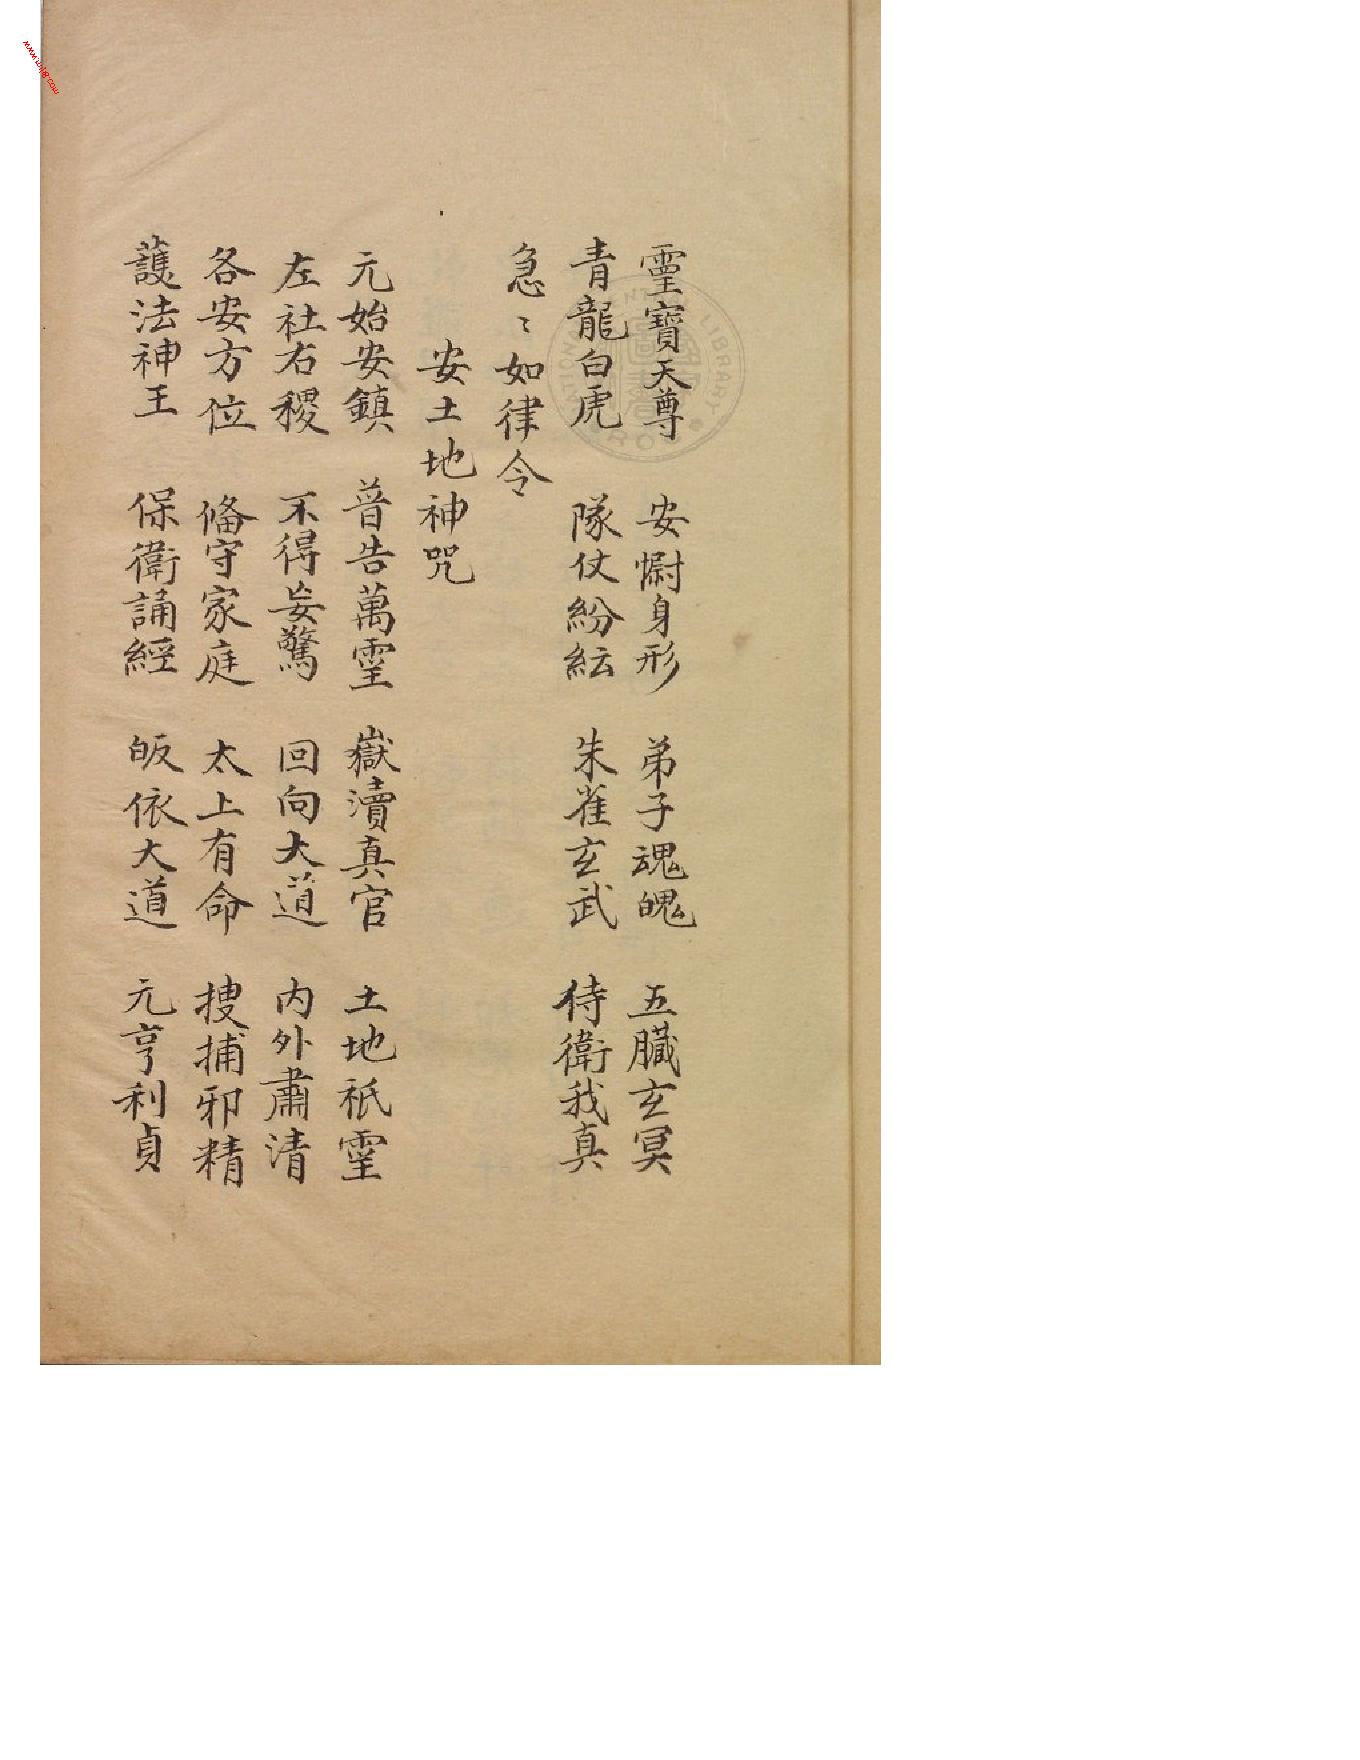 靈寶天尊 安慰身形 弟子魂魄 五臟玄冥
青龍白虎 隊仗紛紜 朱雀玄武 侍衛我真
急〻如律令
安土地神咒
元始安鎮 普告萬靈 嶽瀆真官 土地祇靈
左社右稷 不得妄驚 回向大道 内外肅清
各安方位 俻守家庭 太上有命 搜捕邪精
護法神王 保衛誦經 皈依大道 元亨利貞